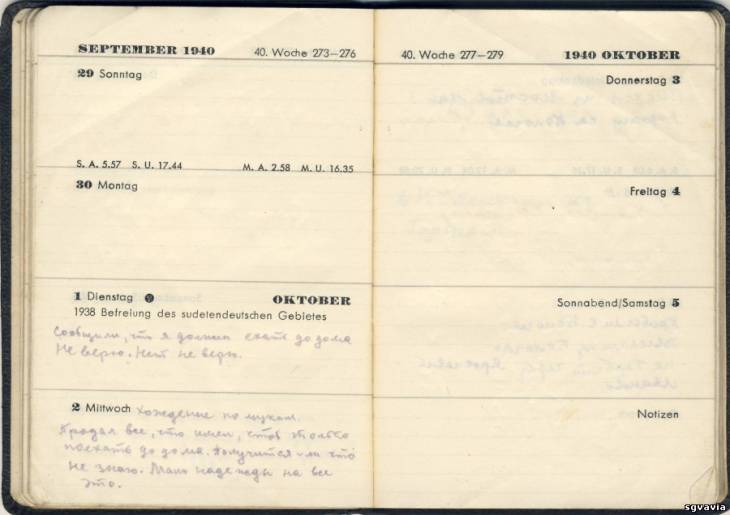 SEPTEMBER 1940 40. Woche 273—276
29 Sonntag
S. A. 5.57 S. U. 17.44 M. A. 2.58 M. U. 16.35
30 Montag
1 Dienstag OKTOBER
1938 Befreiung des sudetendeutschen Gebietes
Сообщили, что я должен ехать до дома
Не верю. Нет не верю.
2 Mittwoch Хождение по мукам.
Продал все, что имел, чтоб только
поехать до дома. Получится или что
не знаю. Мало надежды на все
это.
40. Woche 277—279 1940 OKTOBER
Donnerstag 3
Freitag 4
Sonnabend/Samstag 5
Notizen
sgvavia